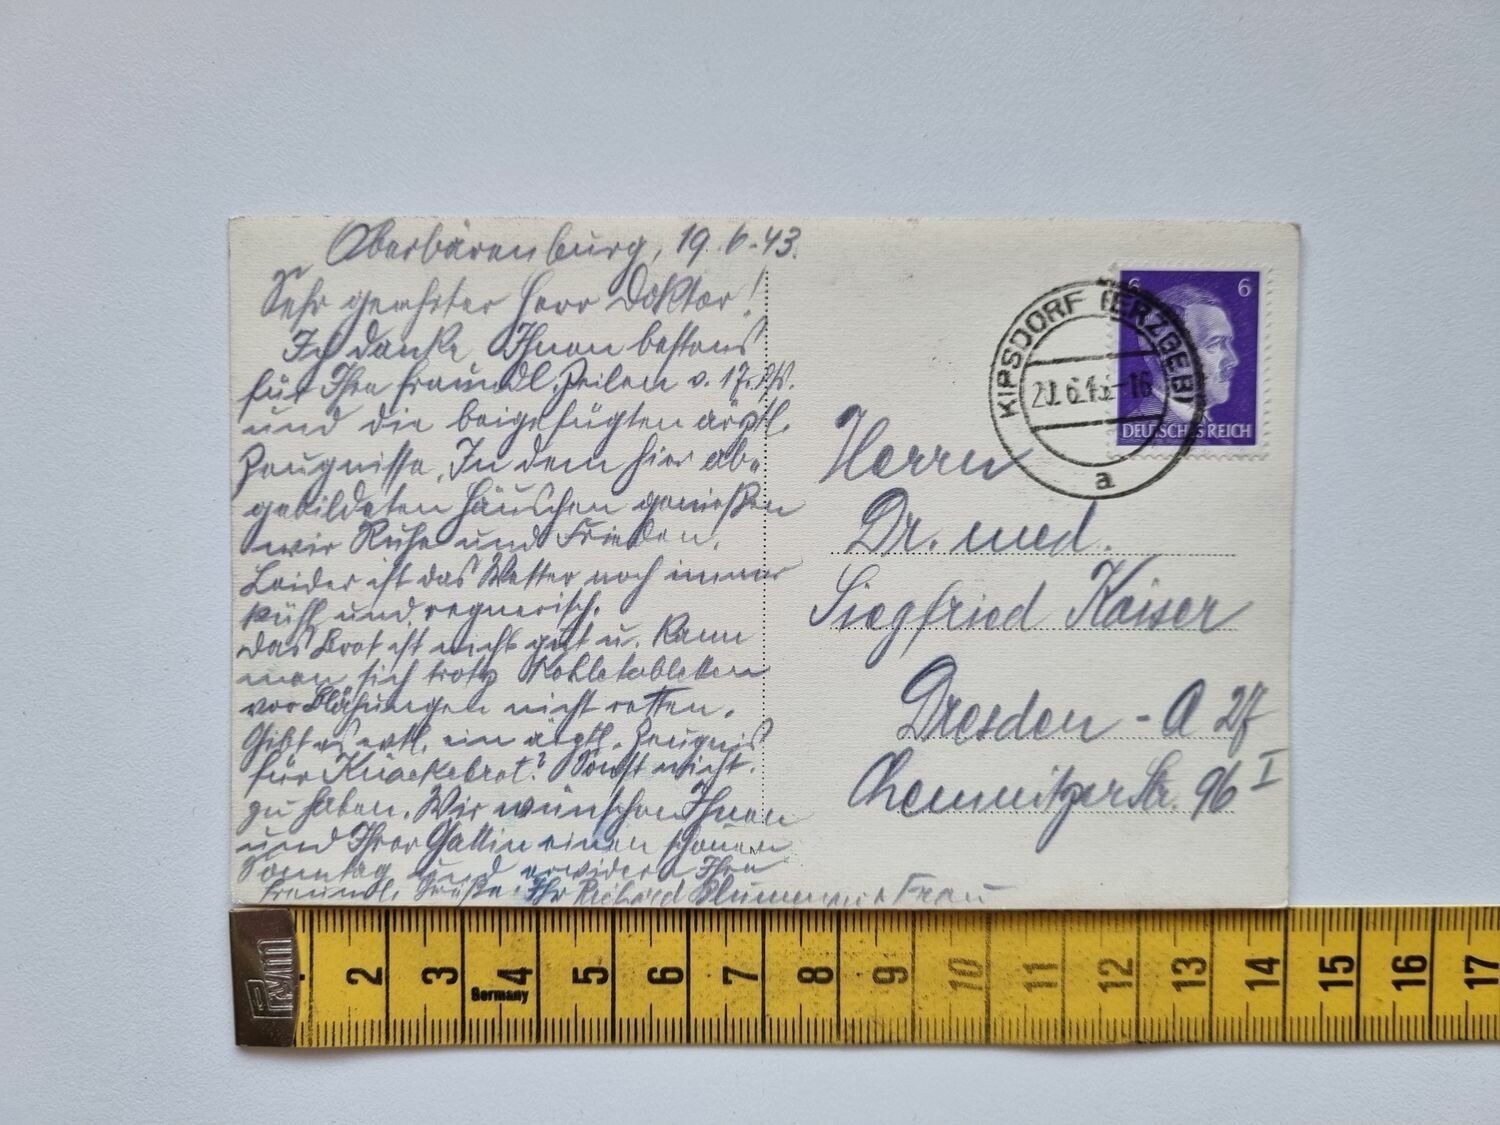 Oberbärenburg, 19.6.43.
Sehr geehrter Herr Doktor!
Ich danke Ihnen bestens
für Ihre freundl. Zeilen v. 17. ds.
und die beigefügten ärztl.
Zeugnisse. In dem hier ab=
gebildeten Häuschen genießen
wir Ruhe und Frieden.
Leider ist das Wetter noch immer
kühl und regnerisch.
Das Brot ist nicht gut u. kann
man sich trotz Kohletabletten
vor Blähungen nicht retten.
Gibt es evtl. ein ärztl. Zeugnis
für Knäckebrot? Sonst nicht
zu haben. Wir wünschen Ihnen
und Ihrer Gattin einen schönen
Sonntag und erwidern Ihre
freundl. Grüße. Ihr Richard Blume u. Frau
KIPSDORF (ERZGEB)
20.6.43-16
a
6 6
DEUTSCHES REICH
Herrn
Dr. med.
Siegfried Kaiser
Dresden - A 27
Chemnitzer Str. 96 I
Prym
2 3 4 5 6 7 8 9 10 11 12 13 14 15 16 17
Germany